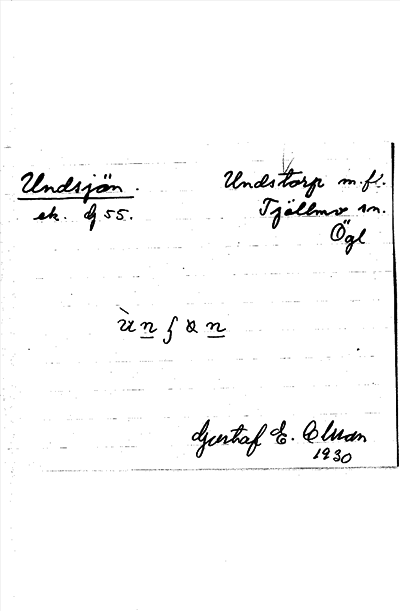 Undsjön.
ek. bj 55.
Undstorp m.fl.
Tjällmo sn.
Ögl
Gustaf E. Olman
1930